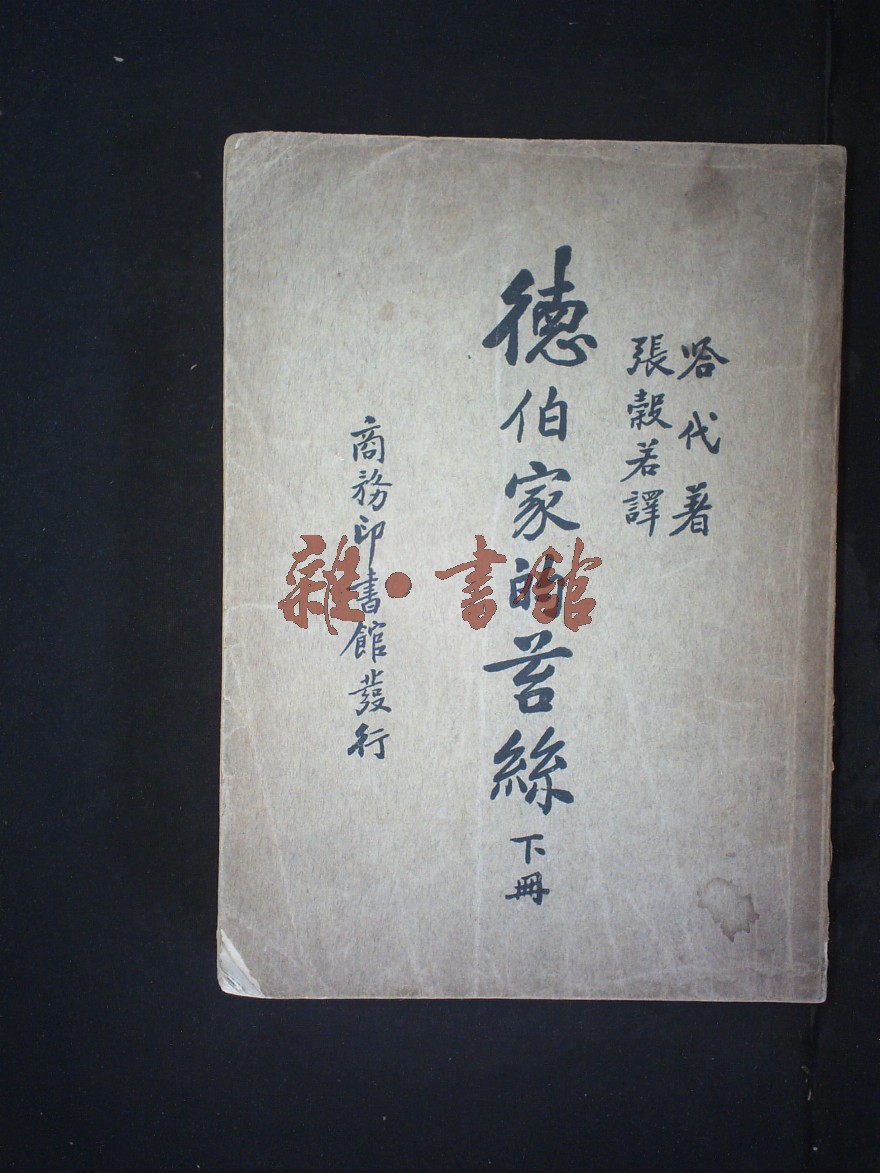 哈代 著
張穀若譯
德伯家的苔絲 下冊
商務印書館發行
雜·書館